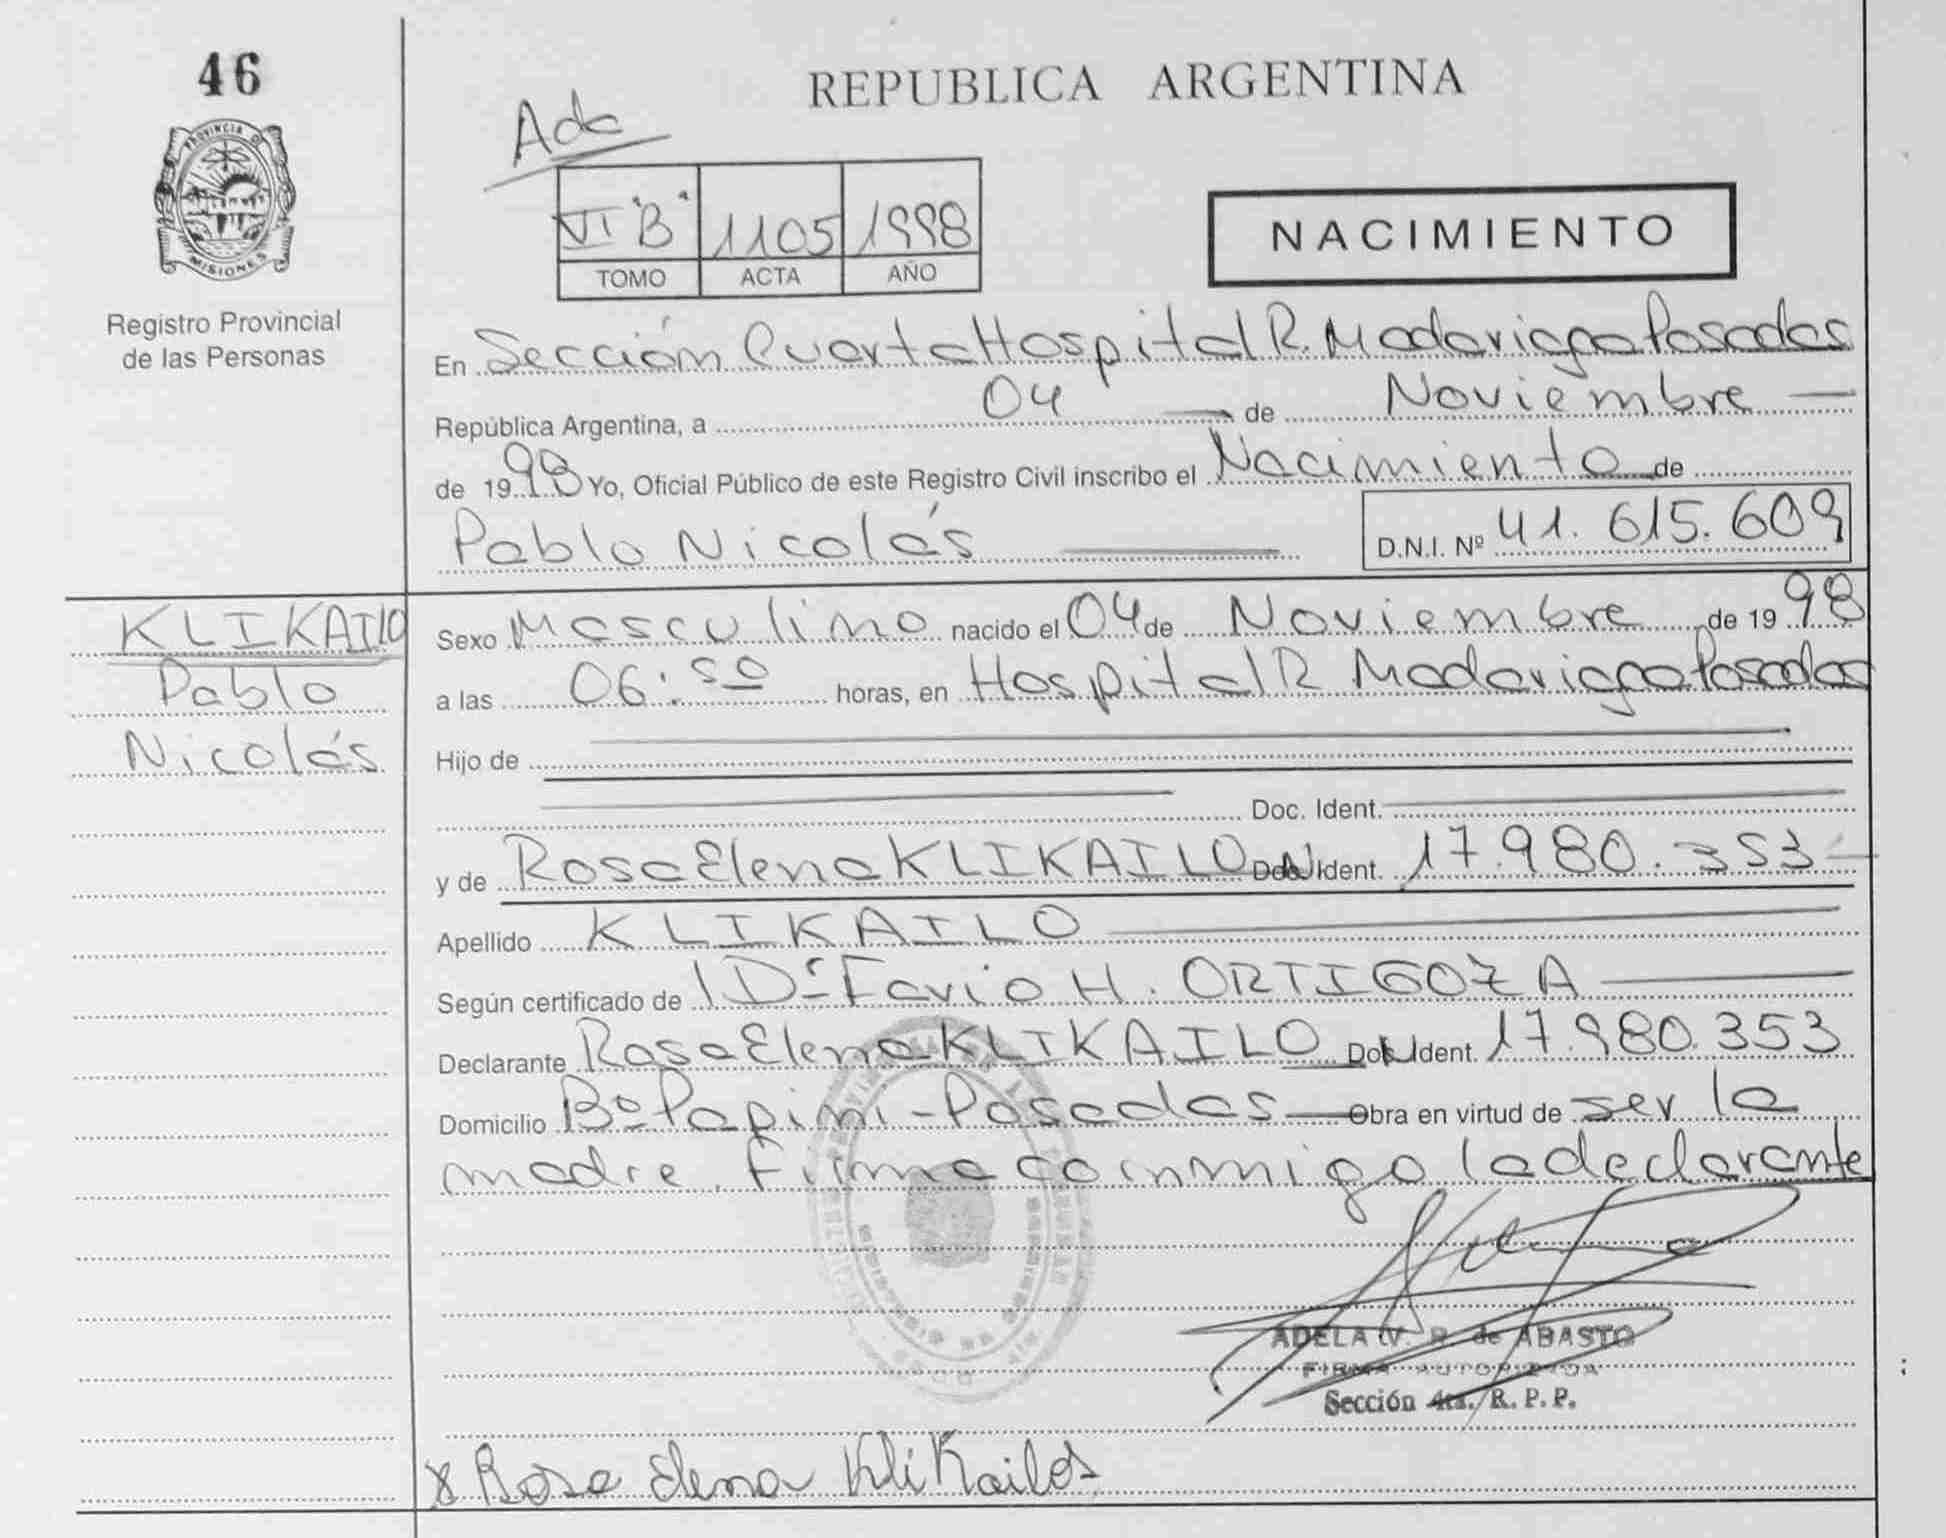 46
REPUBLICA ARGENTINA
PROVINCIA DE
MISIONES
Registro Provincial
de las Personas
VI "B" 1105 1998
TOMO ACTA AÑO
NACIMIENTO
En Sección Cuarta Hospital R. Madariaga Posadas
República Argentina, a 04 de Noviembre
de 1998 Yo, Oficial Público de este Registro Civil inscribo el Nacimiento de
Pablo Nicolás D.N.I. Nº 41.615.609
KLIKAILO
Pablo
Nicolás
Sexo Masculino nacido el 04 de Noviembre de 1998
a las 06:50 horas, en Hospital R Madariaga Posadas
Hijo de
Doc. Ident.
y de Rosa Elena KLIKAILO Ident. 17.980.353
Apellido KLIKAILO
Según certificado de Dr Favio H. ORTIGOZA
Declarante Rosa Elena KLIKAILO Ident. 17.980.353
Domicilio Bº Papini - Posadas Obra en virtud de ser la
madre. Firma conmigo la declarante
ADELA V. R. de ABASTO
FIRMA AUTORIZADA
Sección 4ta. R. P. P.
x Rosa Elena Klikailo